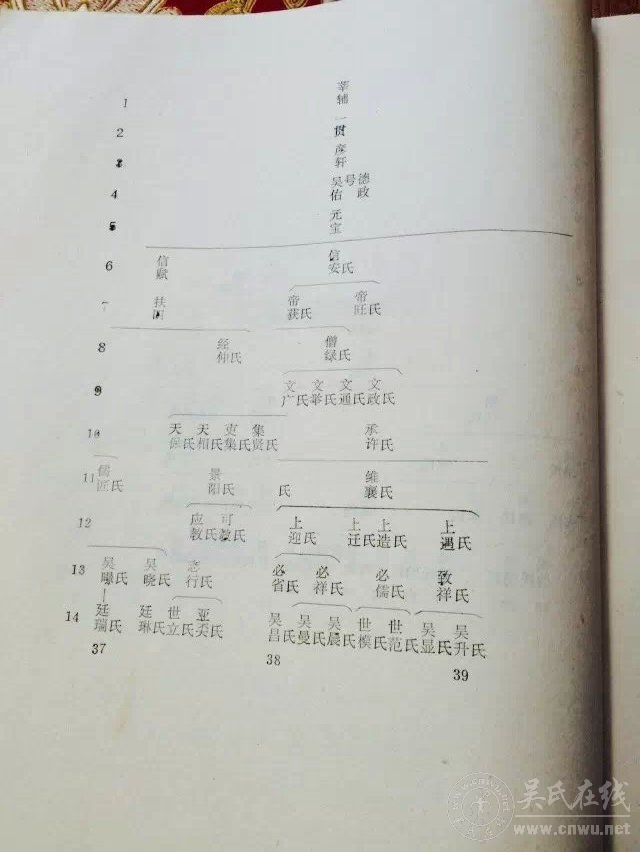 1 莘辅
2 一贯
3 彦轩
4 吴佑 号德政
5 元宝
6 信赋 信安氏
7 扶 帝获氏 帝旺氏
8 经仲氏 僧绿氏
9 文广氏 文举氏 文通氏 文政氏
10 天保氏 天相氏 克集氏 集贤氏 承许氏
11 儒匠氏 景阳氏 氏 维襄氏
12 应教氏 可教氏 上迎氏 上迁氏 上造氏 上遇氏
13 吴曝氏 吴晓氏 行氏 必省氏 必祥氏 必儒氏 致祥氏
14 廷瑞氏 廷琳氏 世立氏 亚氏 吴昌氏 吴曼氏 吴晨氏 世模氏 世范氏 吴显氏 吴升氏
37 38 39
吴氏在线
www.cnwu.net